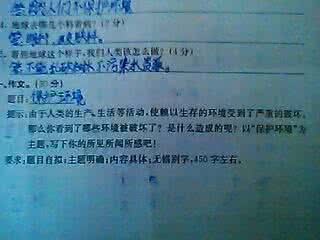 答:因人们不保护环境
4. 地球去哪几个科看病?(2分)
答:眼科,皮肤科。
看到地球这个样子,我们人类该怎么做?(4分)
答:不乱砍树林不污染水资源。
、作文。(30分)
题目:保护环境
提示:由于人类的生产、生活等活动,使赖以生存的环境受到了严重的破坏。
那么你看到了哪些环境被破坏了?是什么造成的呢?以“保护环境”为
主题,写下你的所见所闻所感吧!
要求:题目自拟;主题明确;内容具体;无错别字,450字左右。